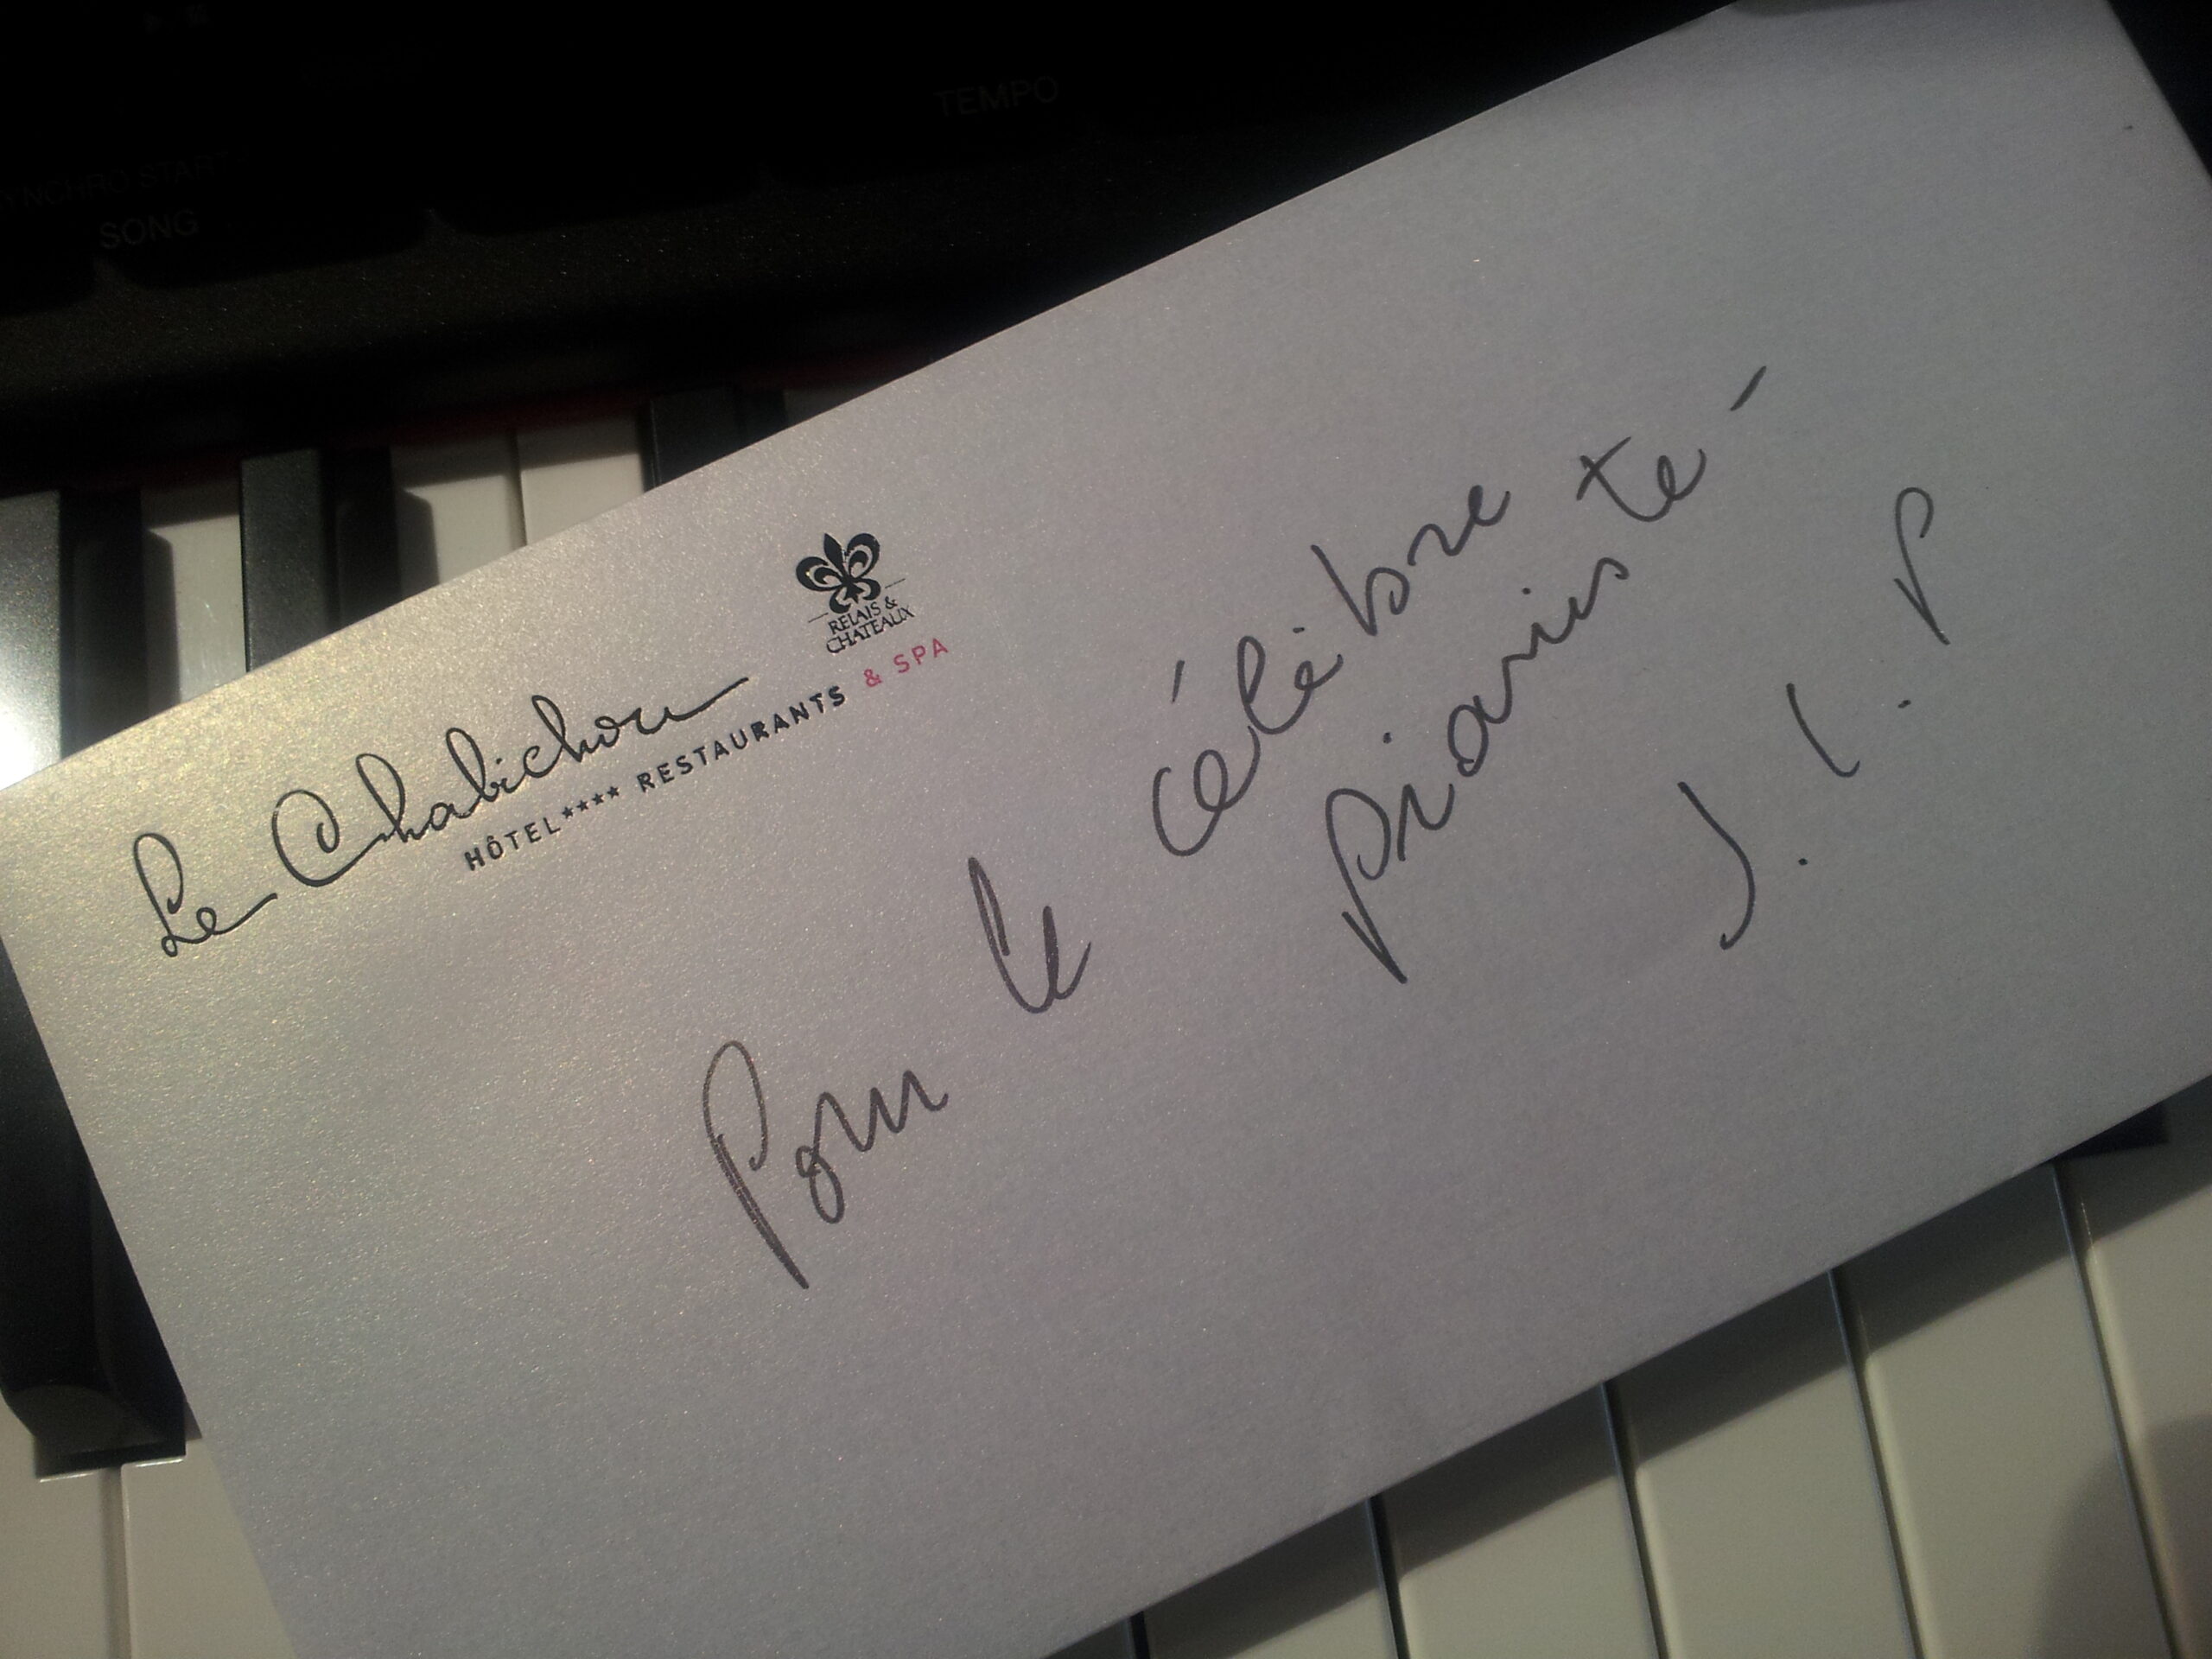 TEMPO
SYNCHRO START
SONG
RELAIS &
CHATEAUX
Le Chabichou
HÔTEL**** RESTAURANTS & SPA
Pour le célèbre
pianiste -
J. L. P